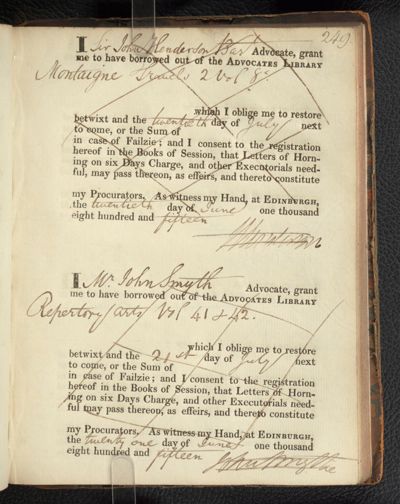 249
I Sir John Henderson Bart Advocate, grant
me to have borrowed out of the ADVOCATES LIBRARY
Montaigne Travels 2 Vol 8o
which I oblige me to restore
betwixt and the twentieth day of July next
to come, or the Sum of
in case of Failzie; and I consent to the registration
hereof in the Books of Session, that Letters of Horn-
ing on six Days Charge, and other Executorials need-
ful, may pass thereon, as effeirs, and thereto constitute
my Procurators. As witness my Hand, at EDINBURGH,
the twentieth day of June one thousand
eight hundred and fifteen
I Mr. John Smyth Advocate, grant
me to have borrowed out of the ADVOCATES LIBRARY
Repertory Arts Vol 41 & 42.
which I oblige me to restore
betwixt and the 21st day of July next
to come, or the Sum of
in case of Failzie; and I consent to the registration
hereof in the Books of Session, that Letters of Horn-
ing on six Days Charge, and other Executorials need-
ful may pass thereon, as effeirs, and thereto constitute
my Procurators. As witness my Hand, at EDINBURGH,
the twenty one day of June one thousand
eight hundred and fifteen John Smythe